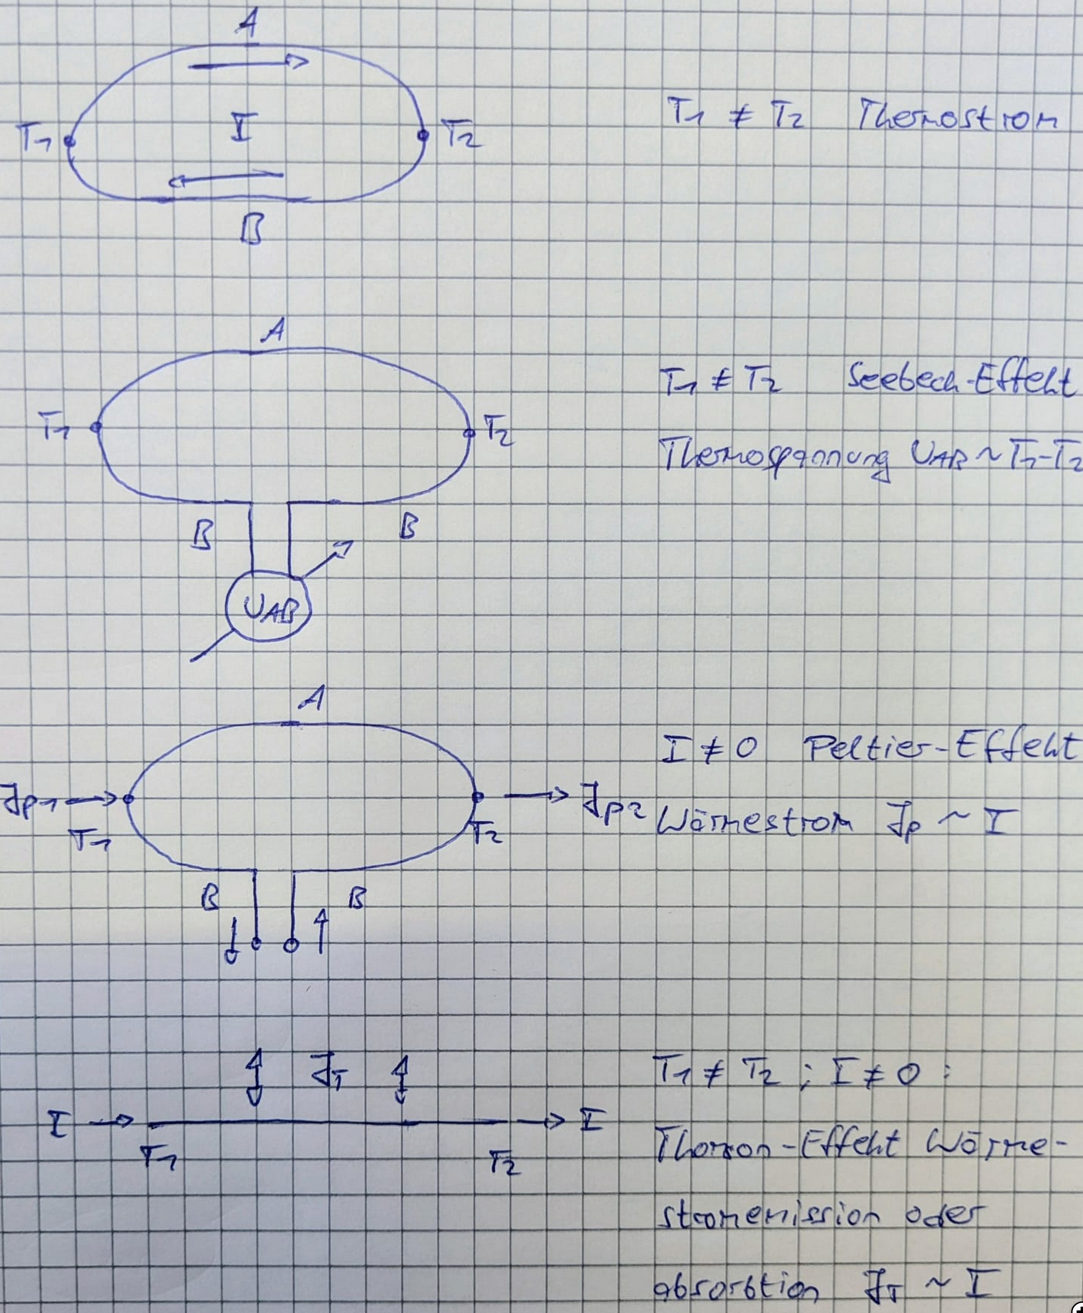 A
I
T1
T2
B
T1 ≠ T2 Thermostrom
A
T1
T2
B
B
UAB
T1 ≠ T2 Seebeck-Effekt
Thermospannung UAB ~ T1-T2
A
Jp1
T1
T2
Jp2
B
B
I ≠ 0 Peltier-Effekt
Wärmestrom Jp ~ I
JT
I
I
T1
T2
T1 ≠ T2 ; I ≠ 0 :
Thomson-Effekt Wärme-
stromemission oder
absorbtion JT ~ I